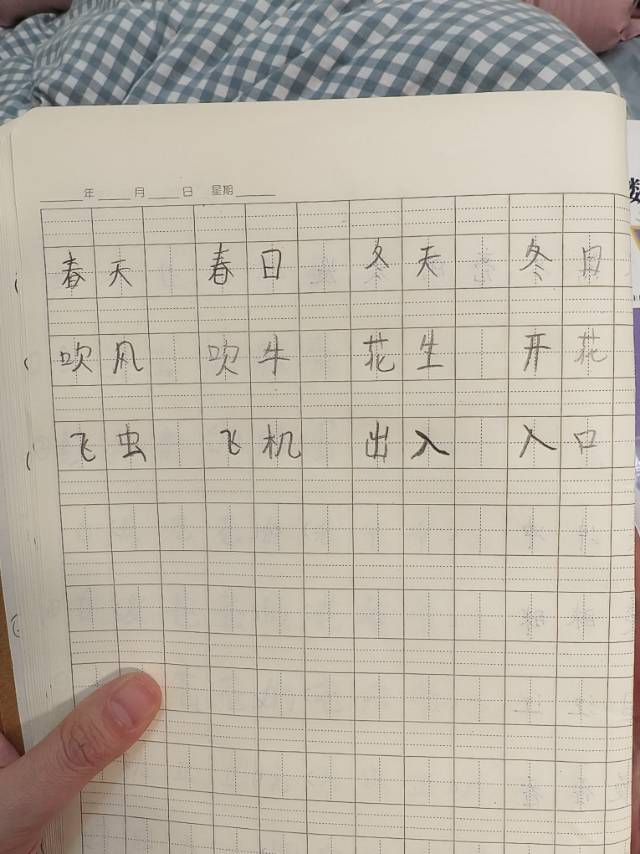 年 月 日 星期
春天 春日 冬天 冬日
吹风 吹牛 花生 开花
飞虫 飞机 出入 入口